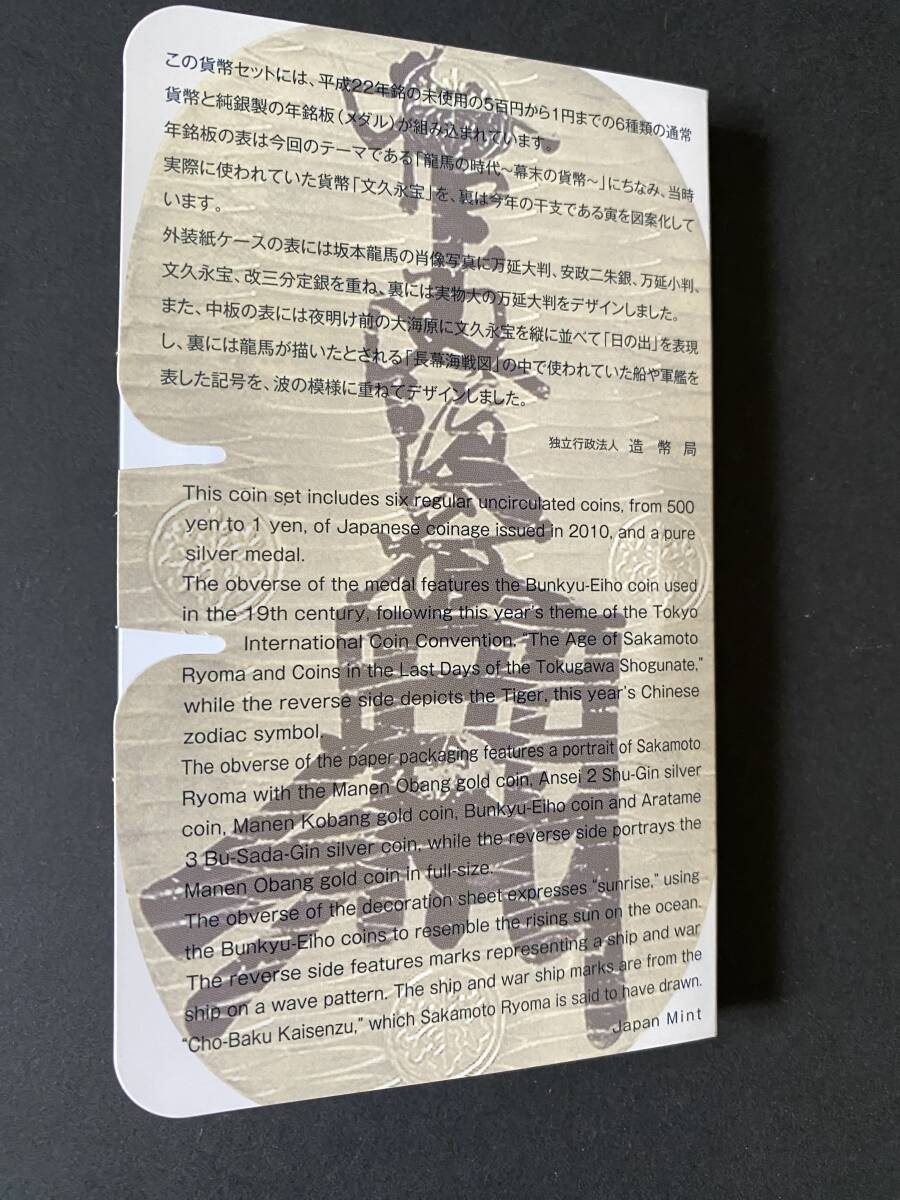 この貨幣セットには、平成22年銘の未使用の5百円から1円までの6種類の通常
貨幣と純銀製の年銘板（メダル）が組み込まれています。
年銘板の表は今回のテーマである「龍馬の時代～幕末の貨幣～」にちなみ、当時
実際に使われていた貨幣「文久永宝」を、裏は今年の干支である寅を図案化して
います。
外装紙ケースの表には坂本龍馬の肖像写真に万延大判、安政二朱銀、万延小判、
文久永宝、改三分定銀を重ね、裏には実物大の万延大判をデザインしました。
また、中板の表には夜明け前の大海原に文久永宝を縦に並べて「日の出」を表現
し、裏には龍馬が描いたとされる「長幕海戦図」の中で使われていた船や軍艦を
表した記号を、波の模様に重ねてデザインしました。
独立行政法人 造幣局
This coin set includes six regular uncirculated coins, from 500
yen to 1 yen, of Japanese coinage issued in 2010, and a pure
silver medal.
The obverse of the medal features the Bunkyu-Eiho coin used
in the 19th century, following this year's theme of the Tokyo
International Coin Convention. "The Age of Sakamoto
Ryoma and Coins in the Last Days of the Tokugawa Shogunate,"
while the reverse side depicts the Tiger, this year's Chinese
zodiac symbol.
The obverse of the paper packaging features a portrait of Sakamoto
Ryoma with the Manen Obang gold coin, Ansei 2 Shu-Gin silver
coin, Manen Kobang gold coin, Bunkyu-Eiho coin and Aratame
3 Bu-Sada-Gin silver coin, while the reverse side portrays the
Manen Obang gold coin in full-size.
The obverse of the decoration sheet expresses "sunrise," using
the Bunkyu-Eiho coins to resemble the rising sun on the ocean.
The reverse side features marks representing a ship and war
ship on a wave pattern. The ship and war ship marks are from the
"Cho-Baku Kaisenzu," which Sakamoto Ryoma is said to have drawn.
Japan Mint